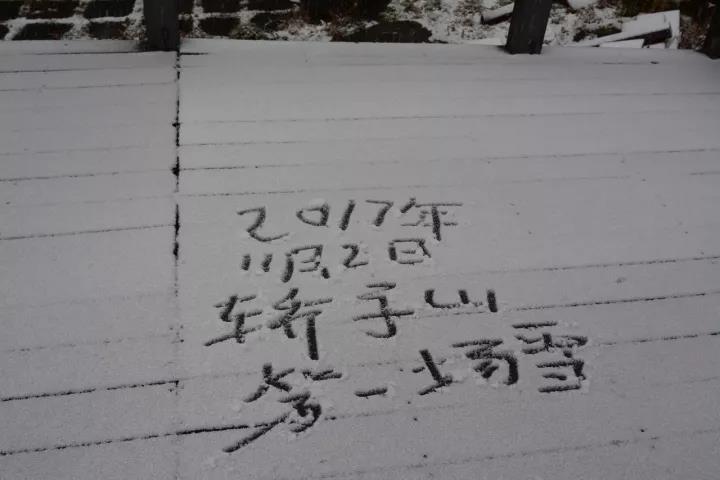 2017年
11月2日
轿子山
第一场雪